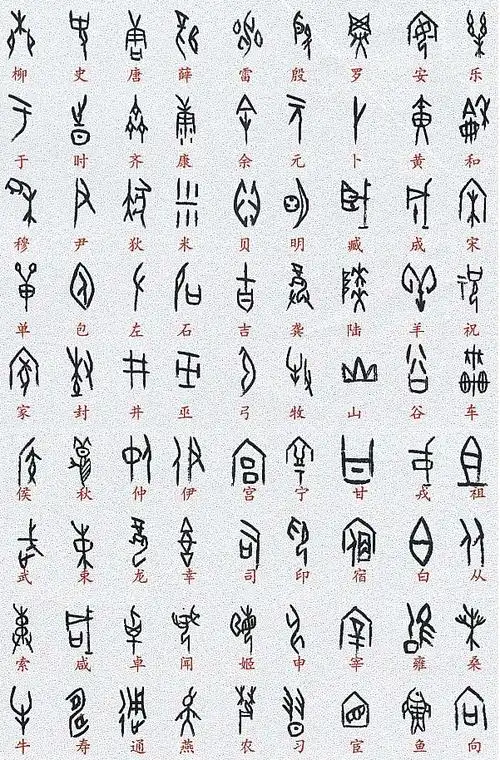 柳 史 唐 薛 雷 殷 罗 安 乐
于 时 齐 康 余 元 卜 黄 和
穆 尹 狄 米 贝 明 臧 成 宋
单 包 左 石 吉 龚 陆 羊 祝
家 封 井 巫 弓 牧 山 谷 车
侯 秋 仲 伊 宫 宁 甘 戎 祖
武 束 龙 幸 司 印 宿 白 从
索 咸 卓 闻 姬 申 宰 雍 桑
牛 寿 通 燕 农 习 宦 鱼 向